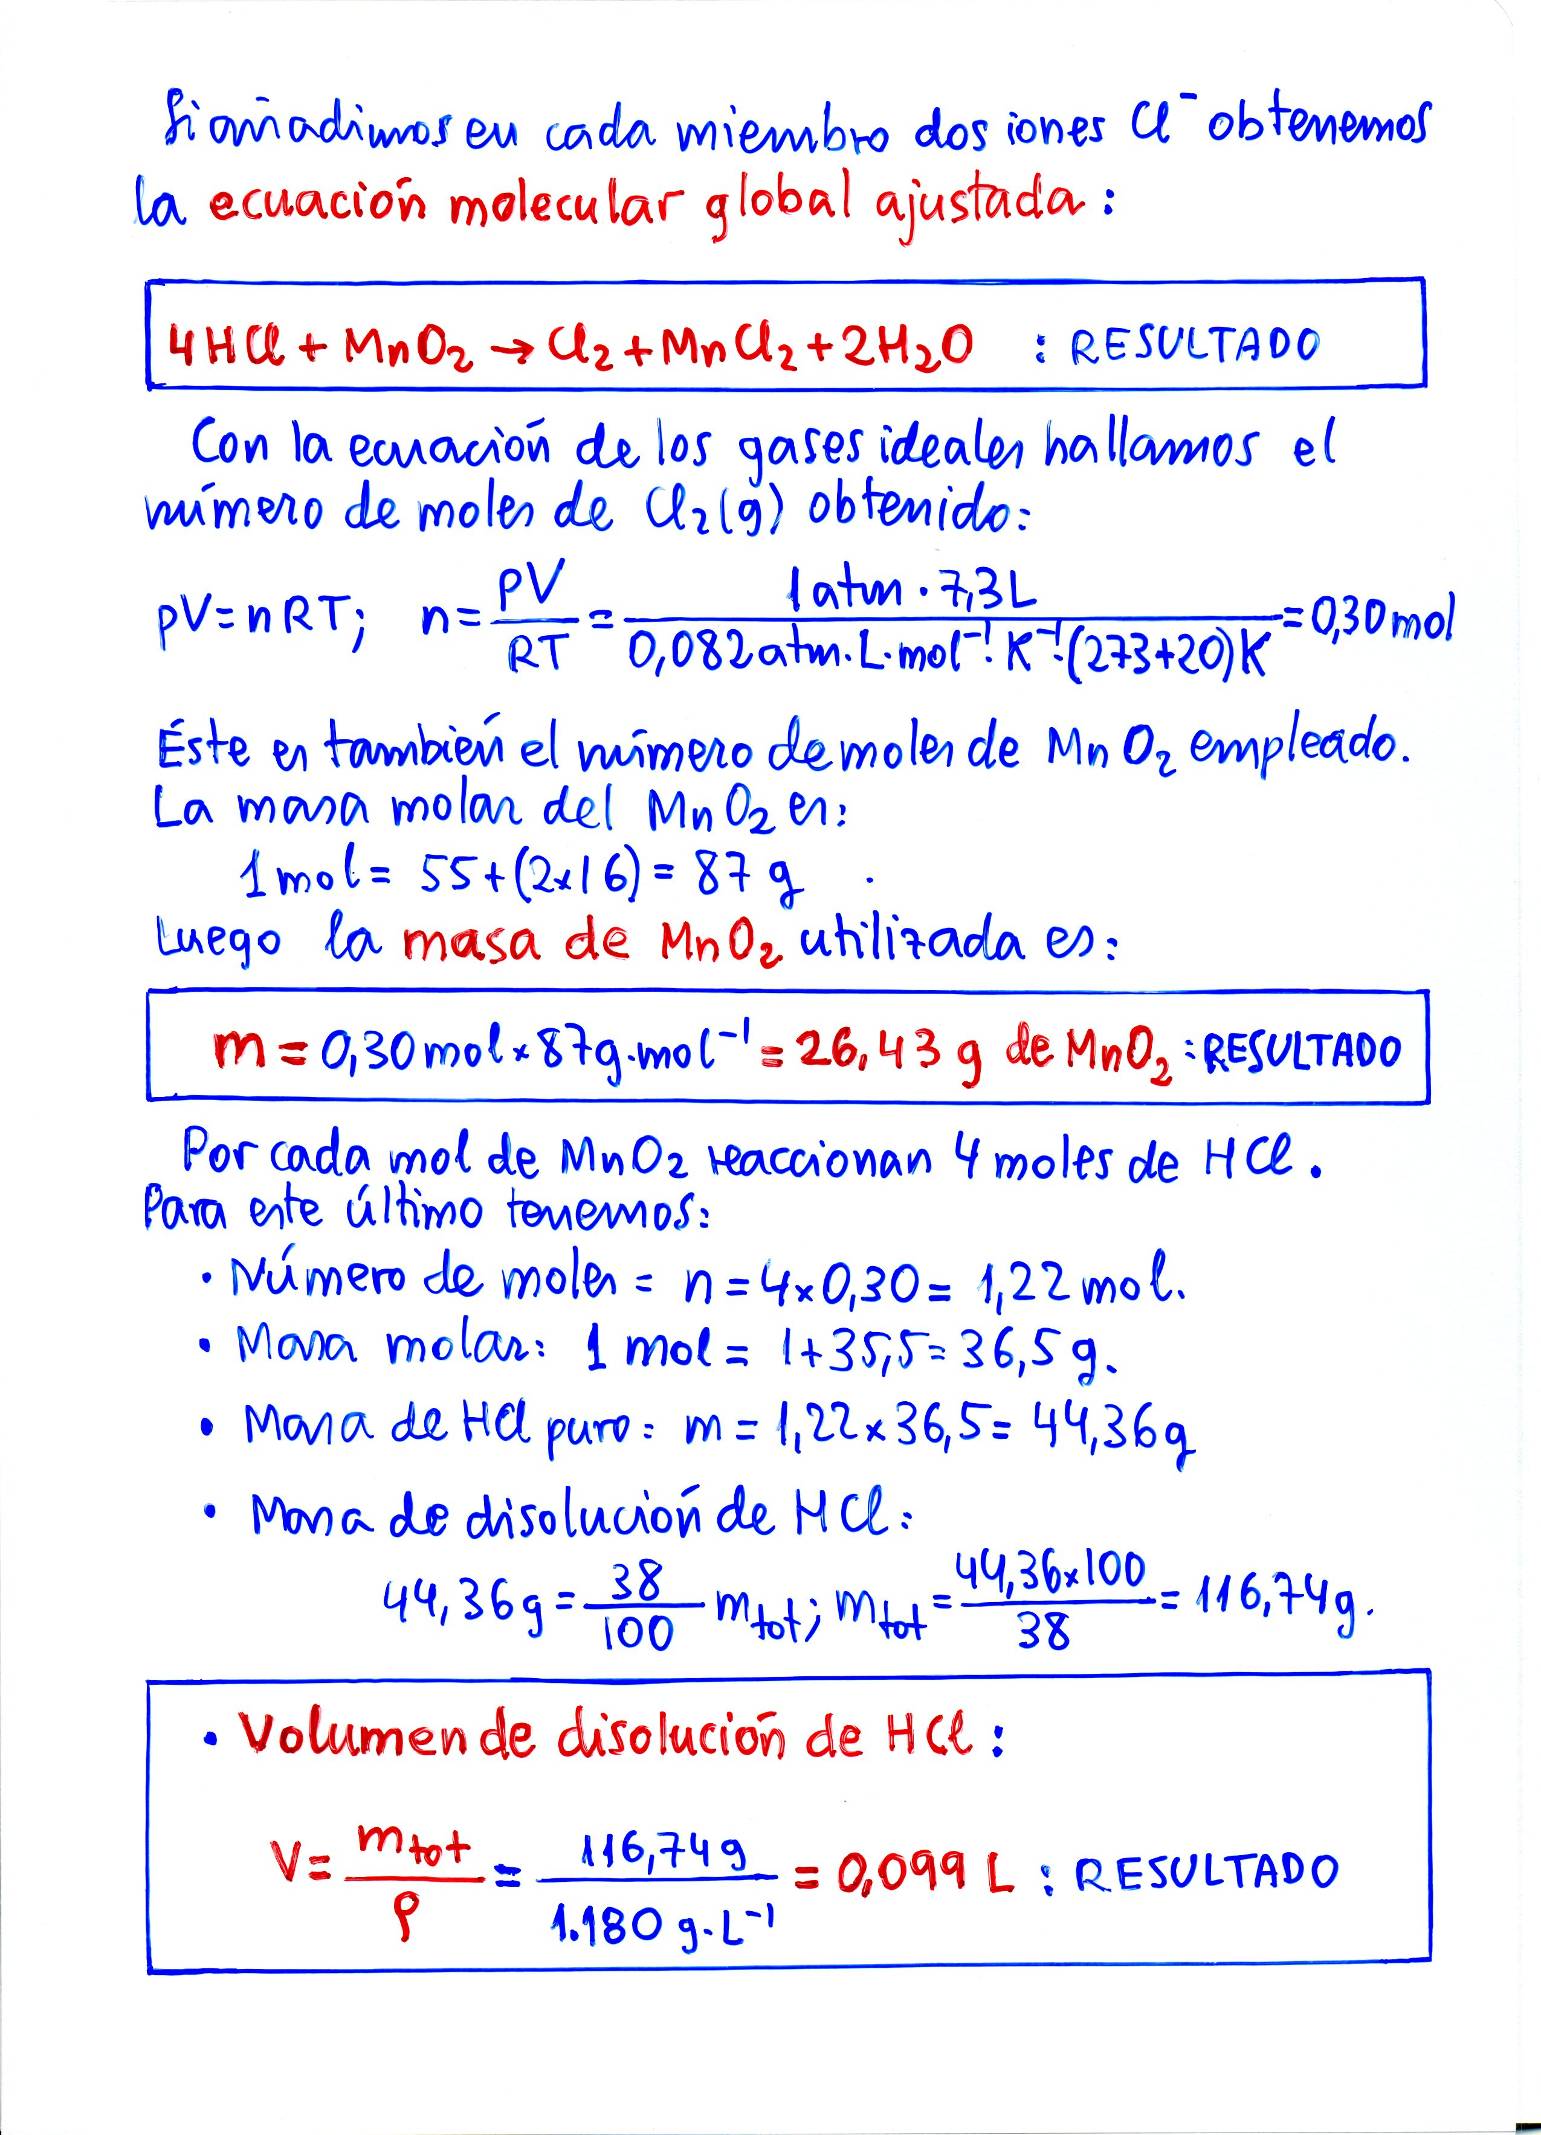 Si añadimos en cada miembro dos iones Cl⁻ obtenemos
la ecuación molecular global ajustada:
4HCl + MnO₂ → Cl₂ + MnCl₂ + 2H₂O : RESULTADO
Con la ecuación de los gases ideales hallamos el
número de moles de Cl₂(g) obtenido:
pV = nRT; n = pV/RT = 1 atm · 7,3 L / 0,082 atm·L·mol⁻¹·K⁻¹·(273+20)K = 0,30 mol
Éste es también el número de moles de MnO₂ empleado.
La masa molar del MnO₂ es:
1 mol = 55 + (2x16) = 87 g
Luego la masa de MnO₂ utilizada es:
m = 0,30 mol x 87g·mol⁻¹ = 26,43 g de MnO₂ : RESULTADO
Por cada mol de MnO₂ reaccionan 4 moles de HCl.
Para este último tenemos:
• Número de moles = n = 4x0,30 = 1,22 mol.
• Masa molar: 1 mol = 1+35,5 = 36,5 g.
• Masa de HCl puro: m = 1,22x36,5 = 44,36 g
• Masa de disolución de HCl:
44,36 g = 38/100 m_tot; m_tot = 44,36x100/38 = 116,74 g.
• Volumen de disolución de HCl:
V = m_tot/ρ = 116,74 g / 1.180 g·L⁻¹ = 0,099 L : RESULTADO